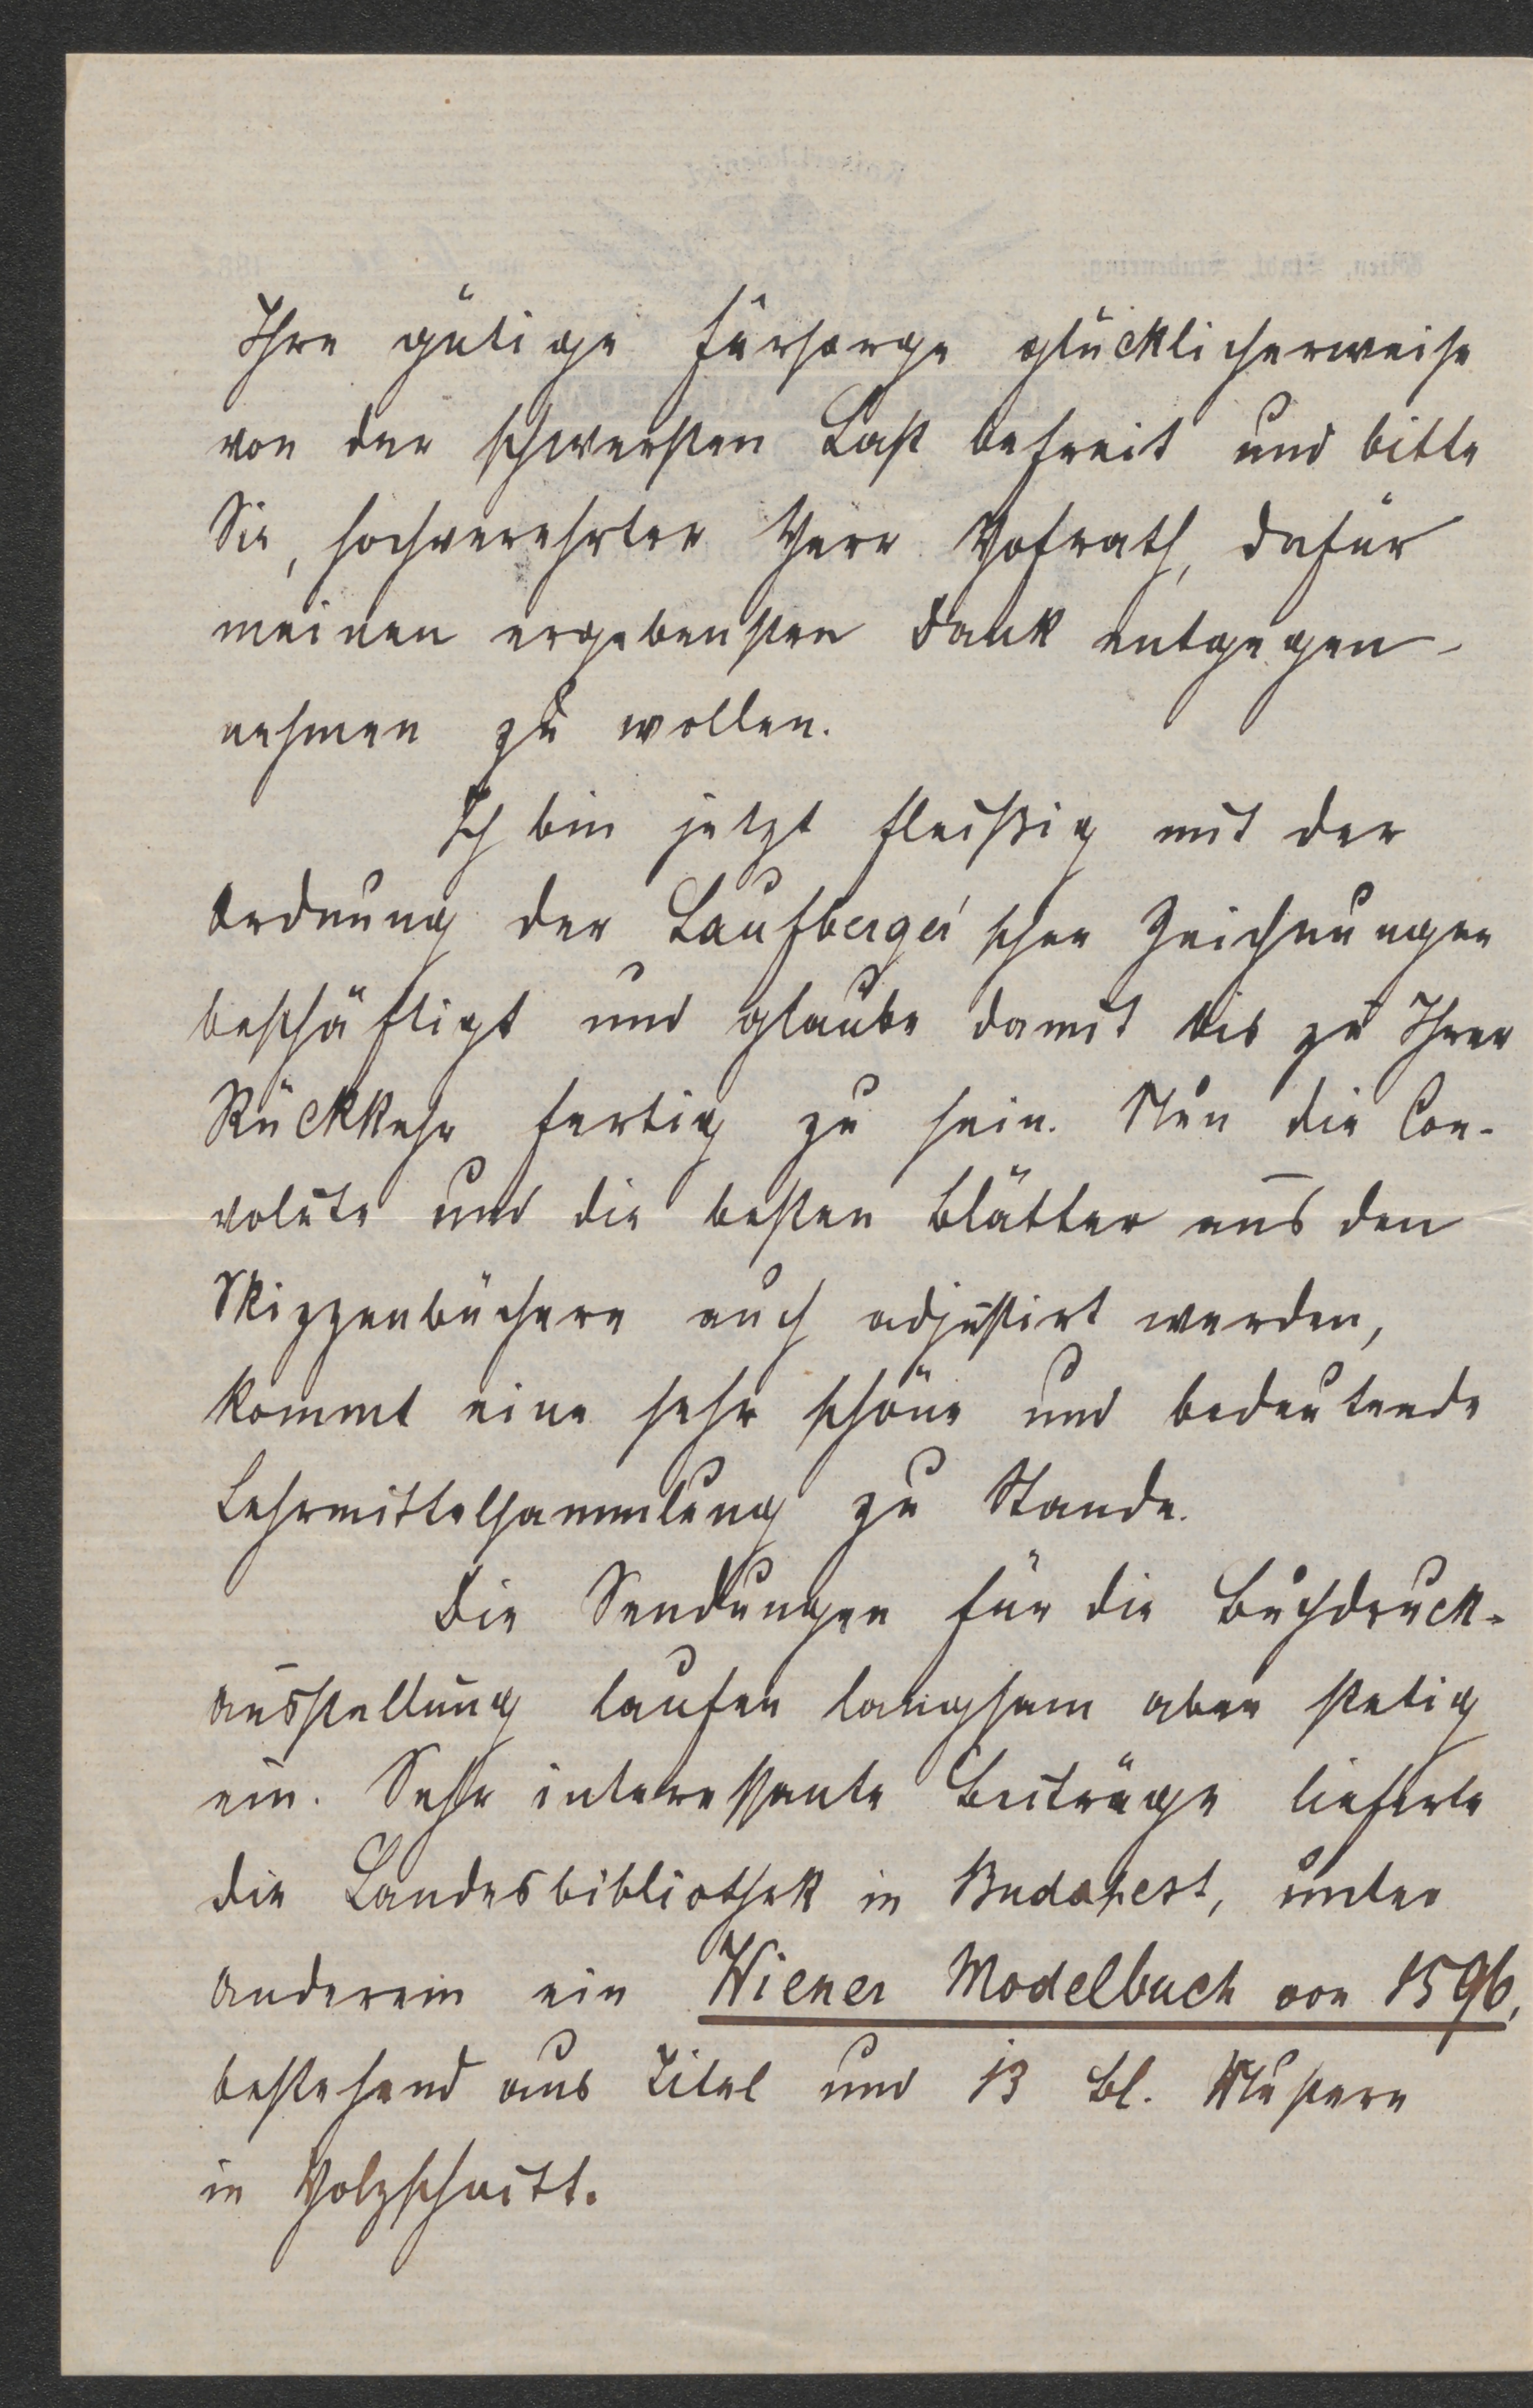 Ihre gütige Fürsorge glücklicherweise
von der schwersten Last befreit und bitte
Sie, hochverehrter Herr Hofrath, dafür
meinen ergebensten Dank entgegen-
nehmen zu wollen.
Ich bin jetzt fleißig mit der
Ordnung der Laufberger'schen Zeichnungen
beschäftigt und glaube damit bis zu Ihrer
Rückkehr fertig zu sein. Nun die Con-
volute und die besten Blätter aus den
Skizzenbüchern auch adjustirt werden,
kommt eine sehr schöne und bedeutende
Lehrmittelsammlung zu Stande.
Die Sendungen für die Buchdruck-
ausstellung laufen langsam aber stetig
ein. Sehr interessante Beiträge lieferte
die Landesbibliothek in Budapest, unter
anderem ein Wiener Modelbuch von 1596,
bestehend aus Titel und 13 Bl. Mustern
in Holzschnitt.